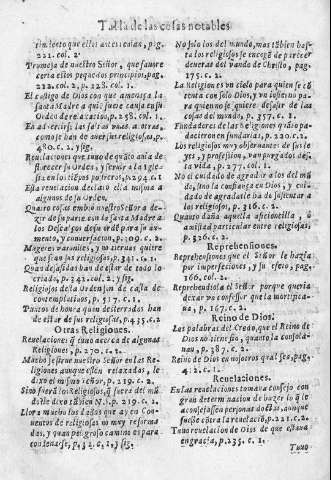 Tabla de las cosas notables
timiento que ellos antes tenian, pag.
221. col. 2.
Promesa de nuestro Señor, que
ceria estos pequeños principios, pag.
212. col. 2. 228. col. 1.
El castigo de Dios con que amenaza la
santa Madre a qui fuere causa en su
Orden de relaxacion, p. 258. col. 1.
En advertir las faltas unas a otras,
como se han de aver las religiosas, p.
480. c. 2. y sig.
Revelaciones que tuvo de quanto avia de
florecer su orden, y servir a la Iglesia
en los ultimos tiempos, p. 294. c. 1
Esta revelacion declaró ella misma a
algunos de su orden.
Quatro cosas embio nuestro Señor a de-
zir de su parte con la santa Madre a
los Descalços de su ordẽ para su au-
mento, y conservacion, p. 309. c. 2.
Mugeres varoniles, y no tiernas quiere
que sean sus religiosas, p. 341. c. 1.
Quan desasidas han de estar de todo lo
criado, p. 343. col. 1. y sig.
Religiosos de la Orden son de casta de
contemplativos, p. 517. c. 1.
Puntos de honra quan desterrados han
de estar de sus religiosas, p. 435. c. 2
Otras Religiones.
Revelaciones q̃ tuvo acerca de algunas
Religiones, p. 270. c. 1.
Mucho se sirve nuestro Señor en las Re-
ligiones aunque esten relaxadas, le
dixo el mismo Señor, p. 219. c. 2.
Sino fuera los Religiosos, q̃ fuera del mũ-
do (le dixo Xpo N.) p. 219. c. 2.
Llora mucho los daños que ay en Con-
ventos de religiosas no muy reforma
das, y quan peligroso camino es para
condenarse, p. 32. c. 1. y sig.
No solo los del mundo, mas tãbien has-
ta los religiosos se encogẽ de parecer
deveras del vando de Christo, pag.
175. c. 2.
La Religion es un cielo para quien se cõ
tenta con solo Dios, y un infierno pa
ra quien no quiere desasir de las
cosas del mundo, p. 357. c. 1.
Fundadores de las Religiones quãto pa-
decieron en fundarlas, p. 220. c. 2.
Los religiosos muy observantes de sus le-
yes, y profession, van purgados desta
vida, p. 277. col. 1.
No el cuidado de agradar a los del mũ-
do, sino la confiança en Dios, y cuida-
do de agradarle sustenta a los
religiosos, p. 326. c. 2.
Quanto daña aquella aficioncilla, o
amistad particular entre religiosas,
p. 326. c. 1.
Reprehensiones.
Reprehensiones que el Señor le hazia
por imperfeciones, y su efeto, pag.
166. col. 2.
Reprehendiola el Señor porque queria
dexar vn confessor que la mortifica-
va, p. 167. c. 2.
Reino de Dios.
Las palabras del Credo, que el Reino de
Dios no tiene fin, quanto la consola-
van, p. 387. c. 2.
Reino de Dios en nosotros qual sea, pag.
412. c. 1.
Revelaciones.
En las revelaciones tomava consejo con
gran determinacion de hazer lo q̃ le
aconsejassen personas doctas, aunque
fuesse contra la revelacion, p. 221. c. 2.
Tuvo revelacion de Dios de que estava
en gracia, p. 235. c. 1.
Tuvo